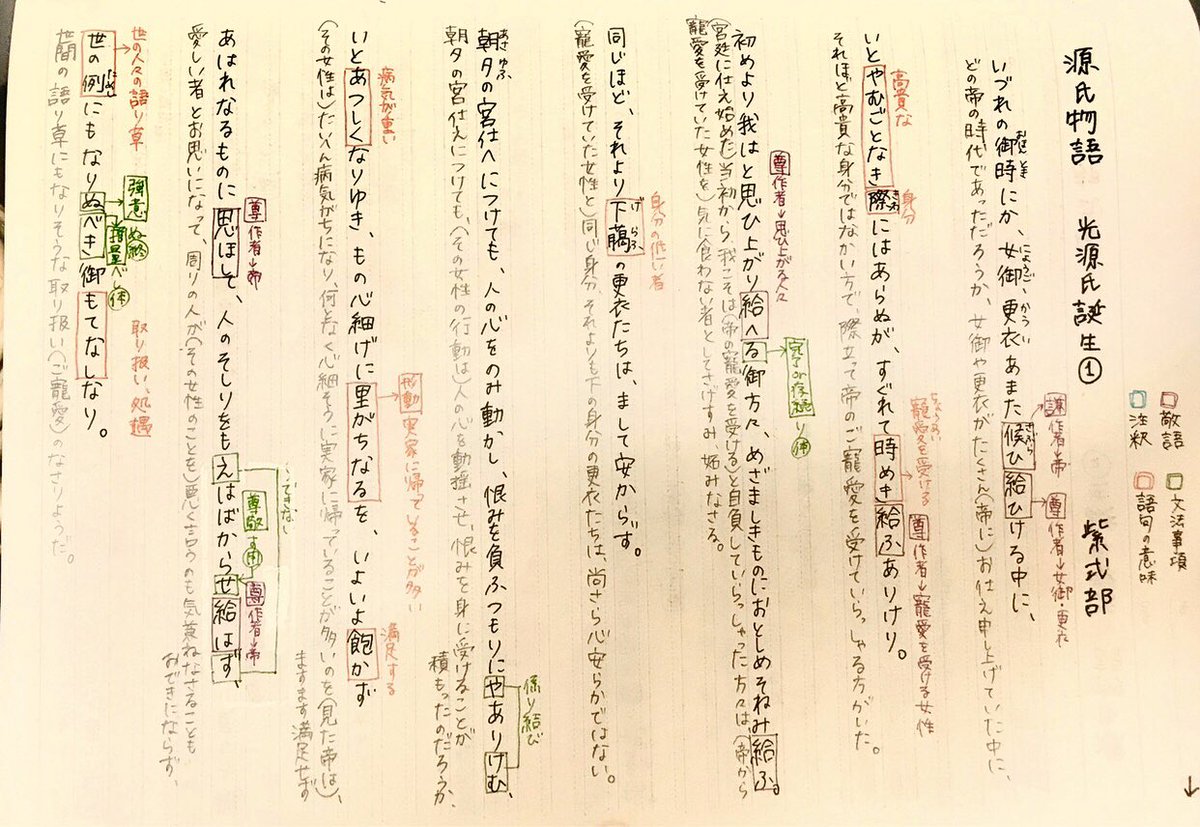 源氏物語　光源氏誕生①　紫式部
敬語
文法事項
注釈
語句の意味
いづれの御時にか、女御、更衣あまた候ひ給ひける中に、
おほんとき
にょうご
かうい
さぶら
謙 作者→帝
尊 作者→女御・更衣
どの帝の時代であっただろうか、女御や更衣がたくさん(帝に)お仕え申し上げていた中に、
高貴な
身分
いとやむごとなき際にはあらぬが、すぐれて時めき給ふありけり。
きは
寵愛を受ける
尊 作者→寵愛を受ける女性
それほど高貴な身分ではなかい方で、際立って帝のご寵愛を受けていらっしゃる方がいた。
尊 作者→思ひ上がる人々
完了or存続 り 体
初めより我はと思ひ上がり給へる御方々、めざましきものにおとしめそねみ給ふ。
(宮廷に仕え始めた)当初から、我こそは(帝の寵愛を受ける)と自負していらっしゃった方々は、(帝から
寵愛を受けていた女性を)気に食わない者としてさげすみ妬みなさる。
身分の低い者
同じほど、それより下臈の更衣たちは、まして安からず。
げらふ
(寵愛を受けていた女性と)同じ身分、それよりも下の身分の更衣たちは、尚さら心安らかではない。
朝夕の宮仕へにつけても、人の心をのみ動かし、恨みを負ふつもりにやありけむ、
あさゆふ
係り結び
朝夕の宮仕えにつけても、(その女性の行動は)人の心を動揺させ、恨みを身に受けることが
積もったのだろうか、
病気が重い
いとあつしくなりゆき、もの心細げに里がちなるを、いよいよ飽かず
形動 実家に帰っていることが多い
満足する
(その女性は)たいへん病気がちになり、何となく心細そうに実家に帰っていることが多いのを(見た帝は)、
ますます満足せず
尊 作者→帝
あはれなるものに思ほして、人のそしりをもえはばからせ給はず、
〜できない
尊敬 す 用
尊 作者→帝
愛しい者とお思いになって、周りの人が(その女性のことを)悪く言うのも気兼ねなさることも
おできにならず、
世の人々の語り草
強意 ぬ 終
推量 べし 体
取り扱い、処遇
世の例にもなりぬべき御もてなしなり。
世間の語り草にもなりそうな取り扱い(ご寵愛)のなさりようだ。
↓